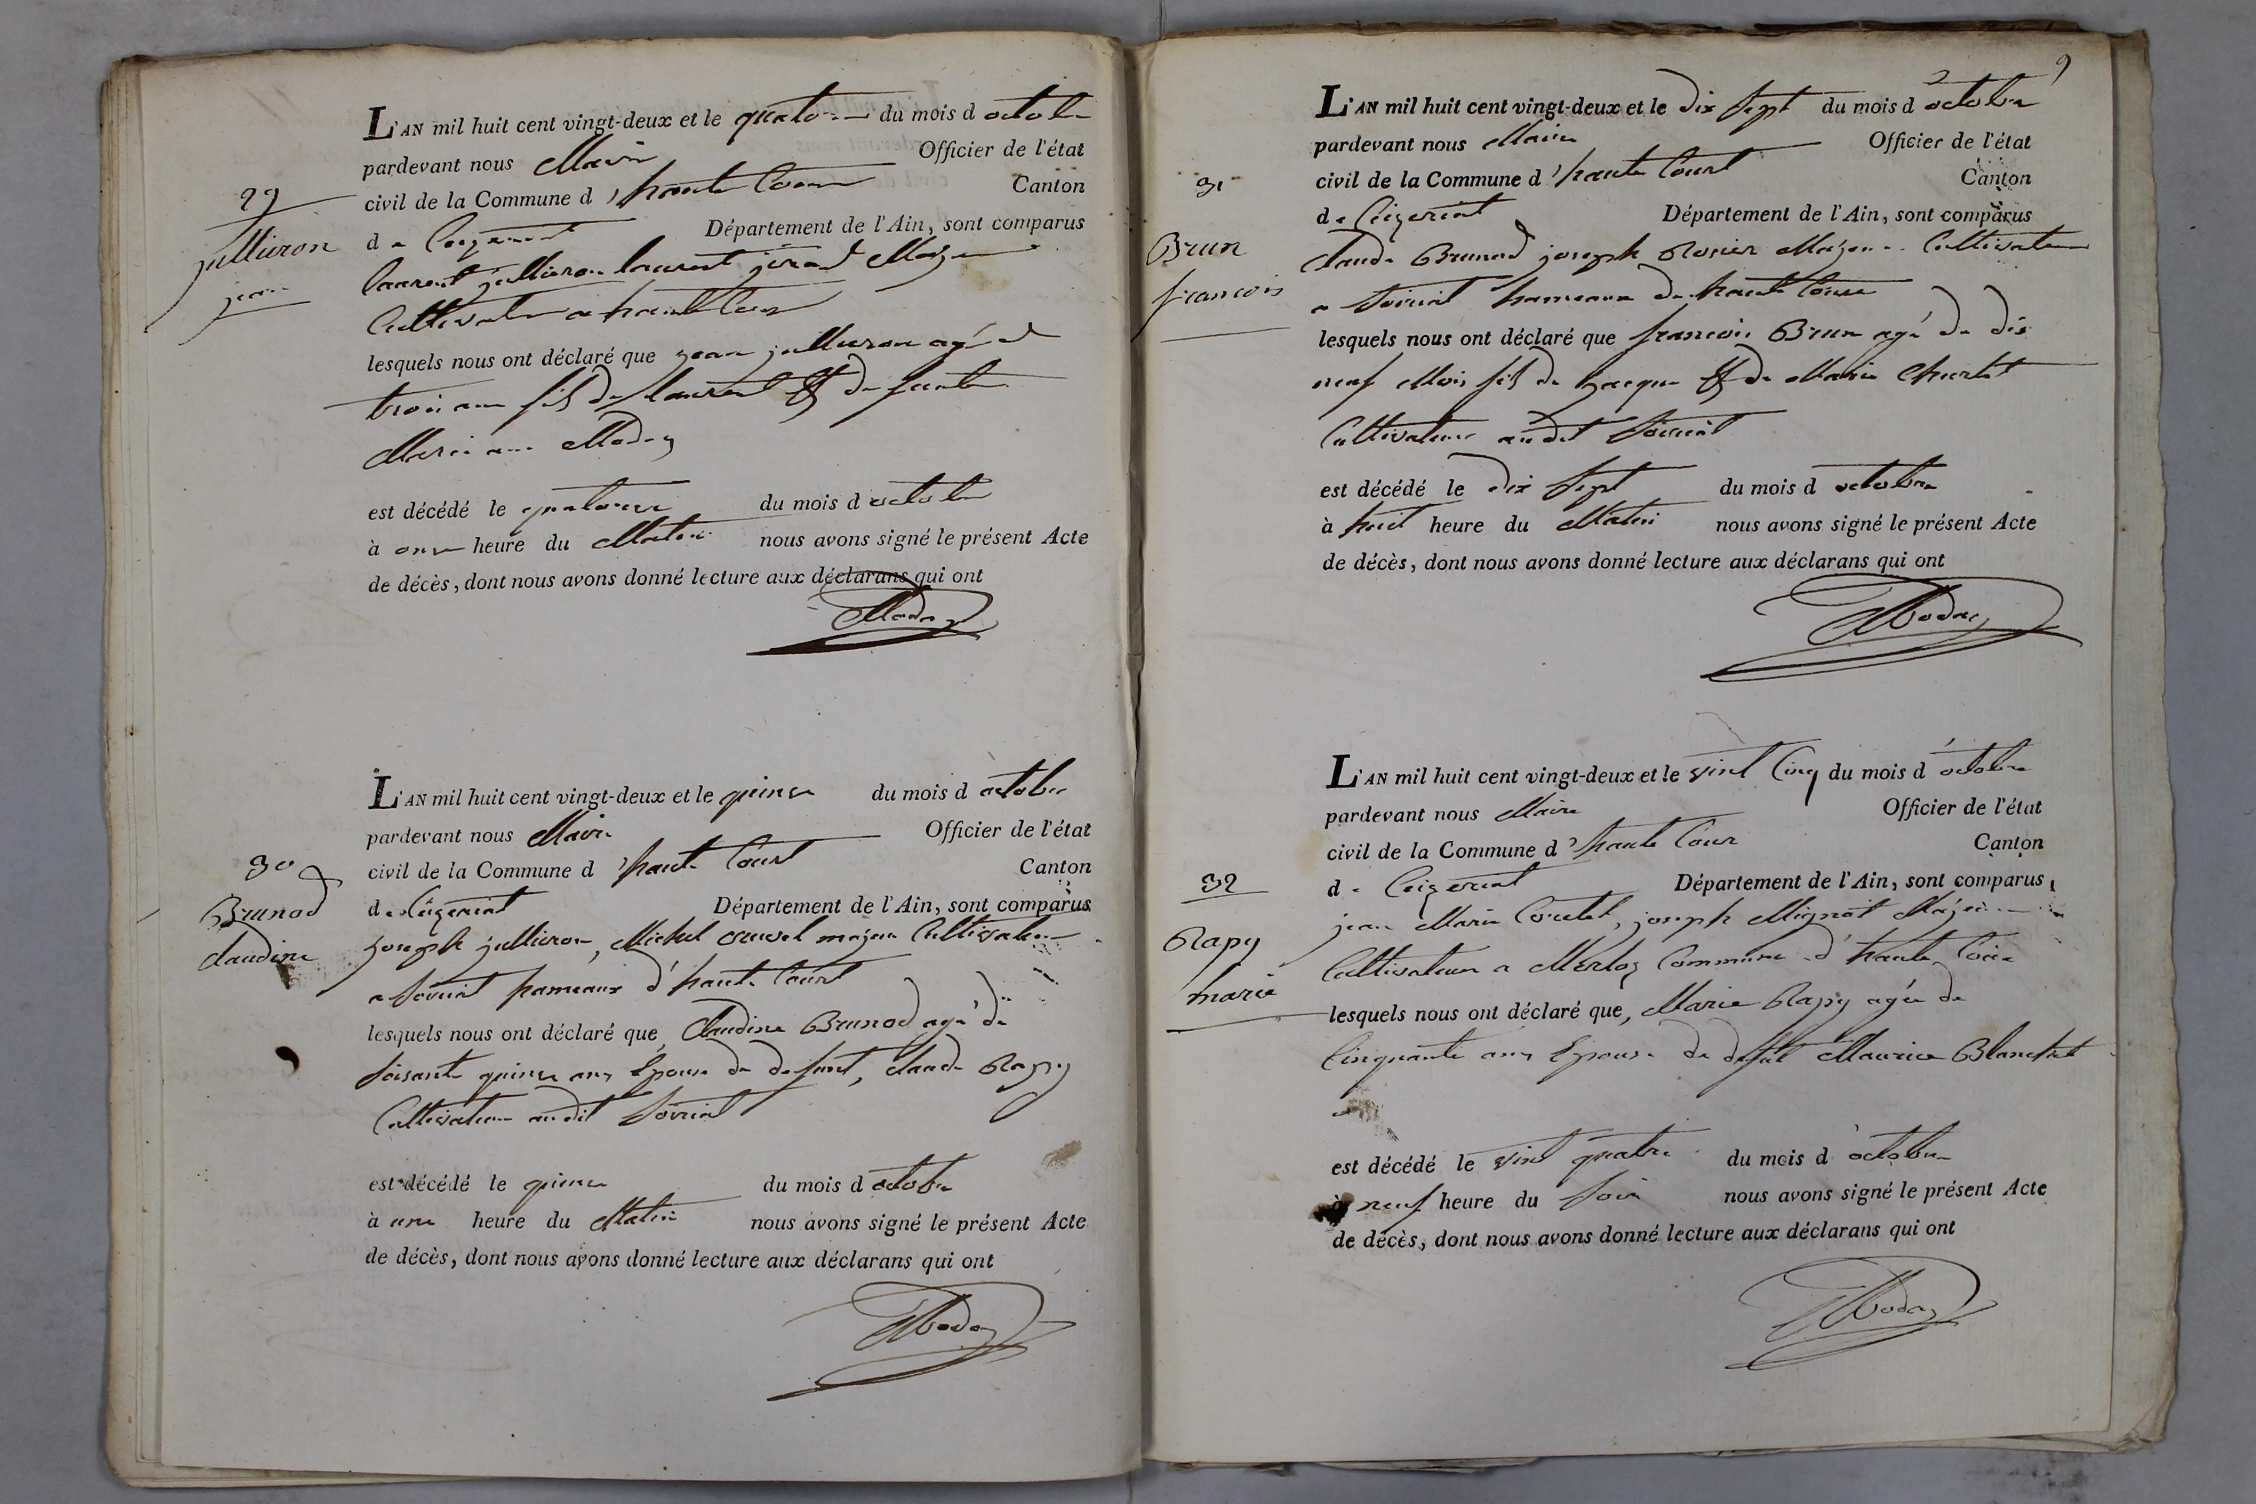 29
jullieron
jean
L'AN mil huit cent vingt-deux et le quatorze du mois d octobre
pardevant nous Maire Officier de l'état
civil de la Commune d haute Cour Canton
de Ceyzeriat Département de l'Ain, sont comparus
laurent jullieron laurent Majeur
Cultivateur a haute Cour
lesquels nous ont déclaré que jean jullieron agé de
trois ans fils de laurent et de
Marianne Moday
est décédé le quatorze du mois d octobre
à onze heure du Matin nous avons signé le présent Acte
de décès, dont nous avons donné lecture aux déclarans qui ont
Moday
30
Brunod
claudine
L'AN mil huit cent vingt-deux et le quinze du mois d octobre
pardevant nous Maire Officier de l'état
civil de la Commune d haute Court Canton
de Ceizeriat Département de l'Ain, sont comparus
joseph jullieron, Michel majeur Cultivateur
a hameaux d'haute Court
lesquels nous ont déclaré que Claudine Brunod agé de
soisante quinze ans Epouse de defunt, claude Rapy
Cultivateur audit
est décédé le quinze du mois d octobre
à une heure du Matin nous avons signé le présent Acte
de décès, dont nous avons donné lecture aux déclarans qui ont
Moday
9
31
Brun
francois
L'AN mil huit cent vingt-deux et le dix sept du mois d octobre
pardevant nous Maire Officier de l'état
civil de la Commune d haute Court Canton
de Ceizeriat Département de l'Ain, sont comparus
claude Brunod joseph Rosier Majeur Cultivateur
a hameaux de haute Cour
lesquels nous ont déclaré que francois Brun agé de dix
neuf Mois fils de jacque et de Marie
Cultivateur audit
est décédé le dix sept du mois d octobre
à huit heure du Matin nous avons signé le présent Acte
de décès, dont nous avons donné lecture aux déclarans qui ont
Moday
32
Rapy
marie
L'AN mil huit cent vingt-deux et le vint Cinq du mois d octobre
pardevant nous Maire Officier de l'état
civil de la Commune d haute Cour Canton
de Ceizeriat Département de l'Ain, sont comparus
jean Marie, joseph Mignot Majeur
Cultivateur a Merloz Commune d'haute Cour
lesquels nous ont déclaré que, Marie Rapy agée de
Cinquante ans Epouse de Maurice Blanchet
est décédé le vint quatre du mois d octobre
à neuf heure du soir nous avons signé le présent Acte
de décès, dont nous avons donné lecture aux déclarans qui ont
Moday